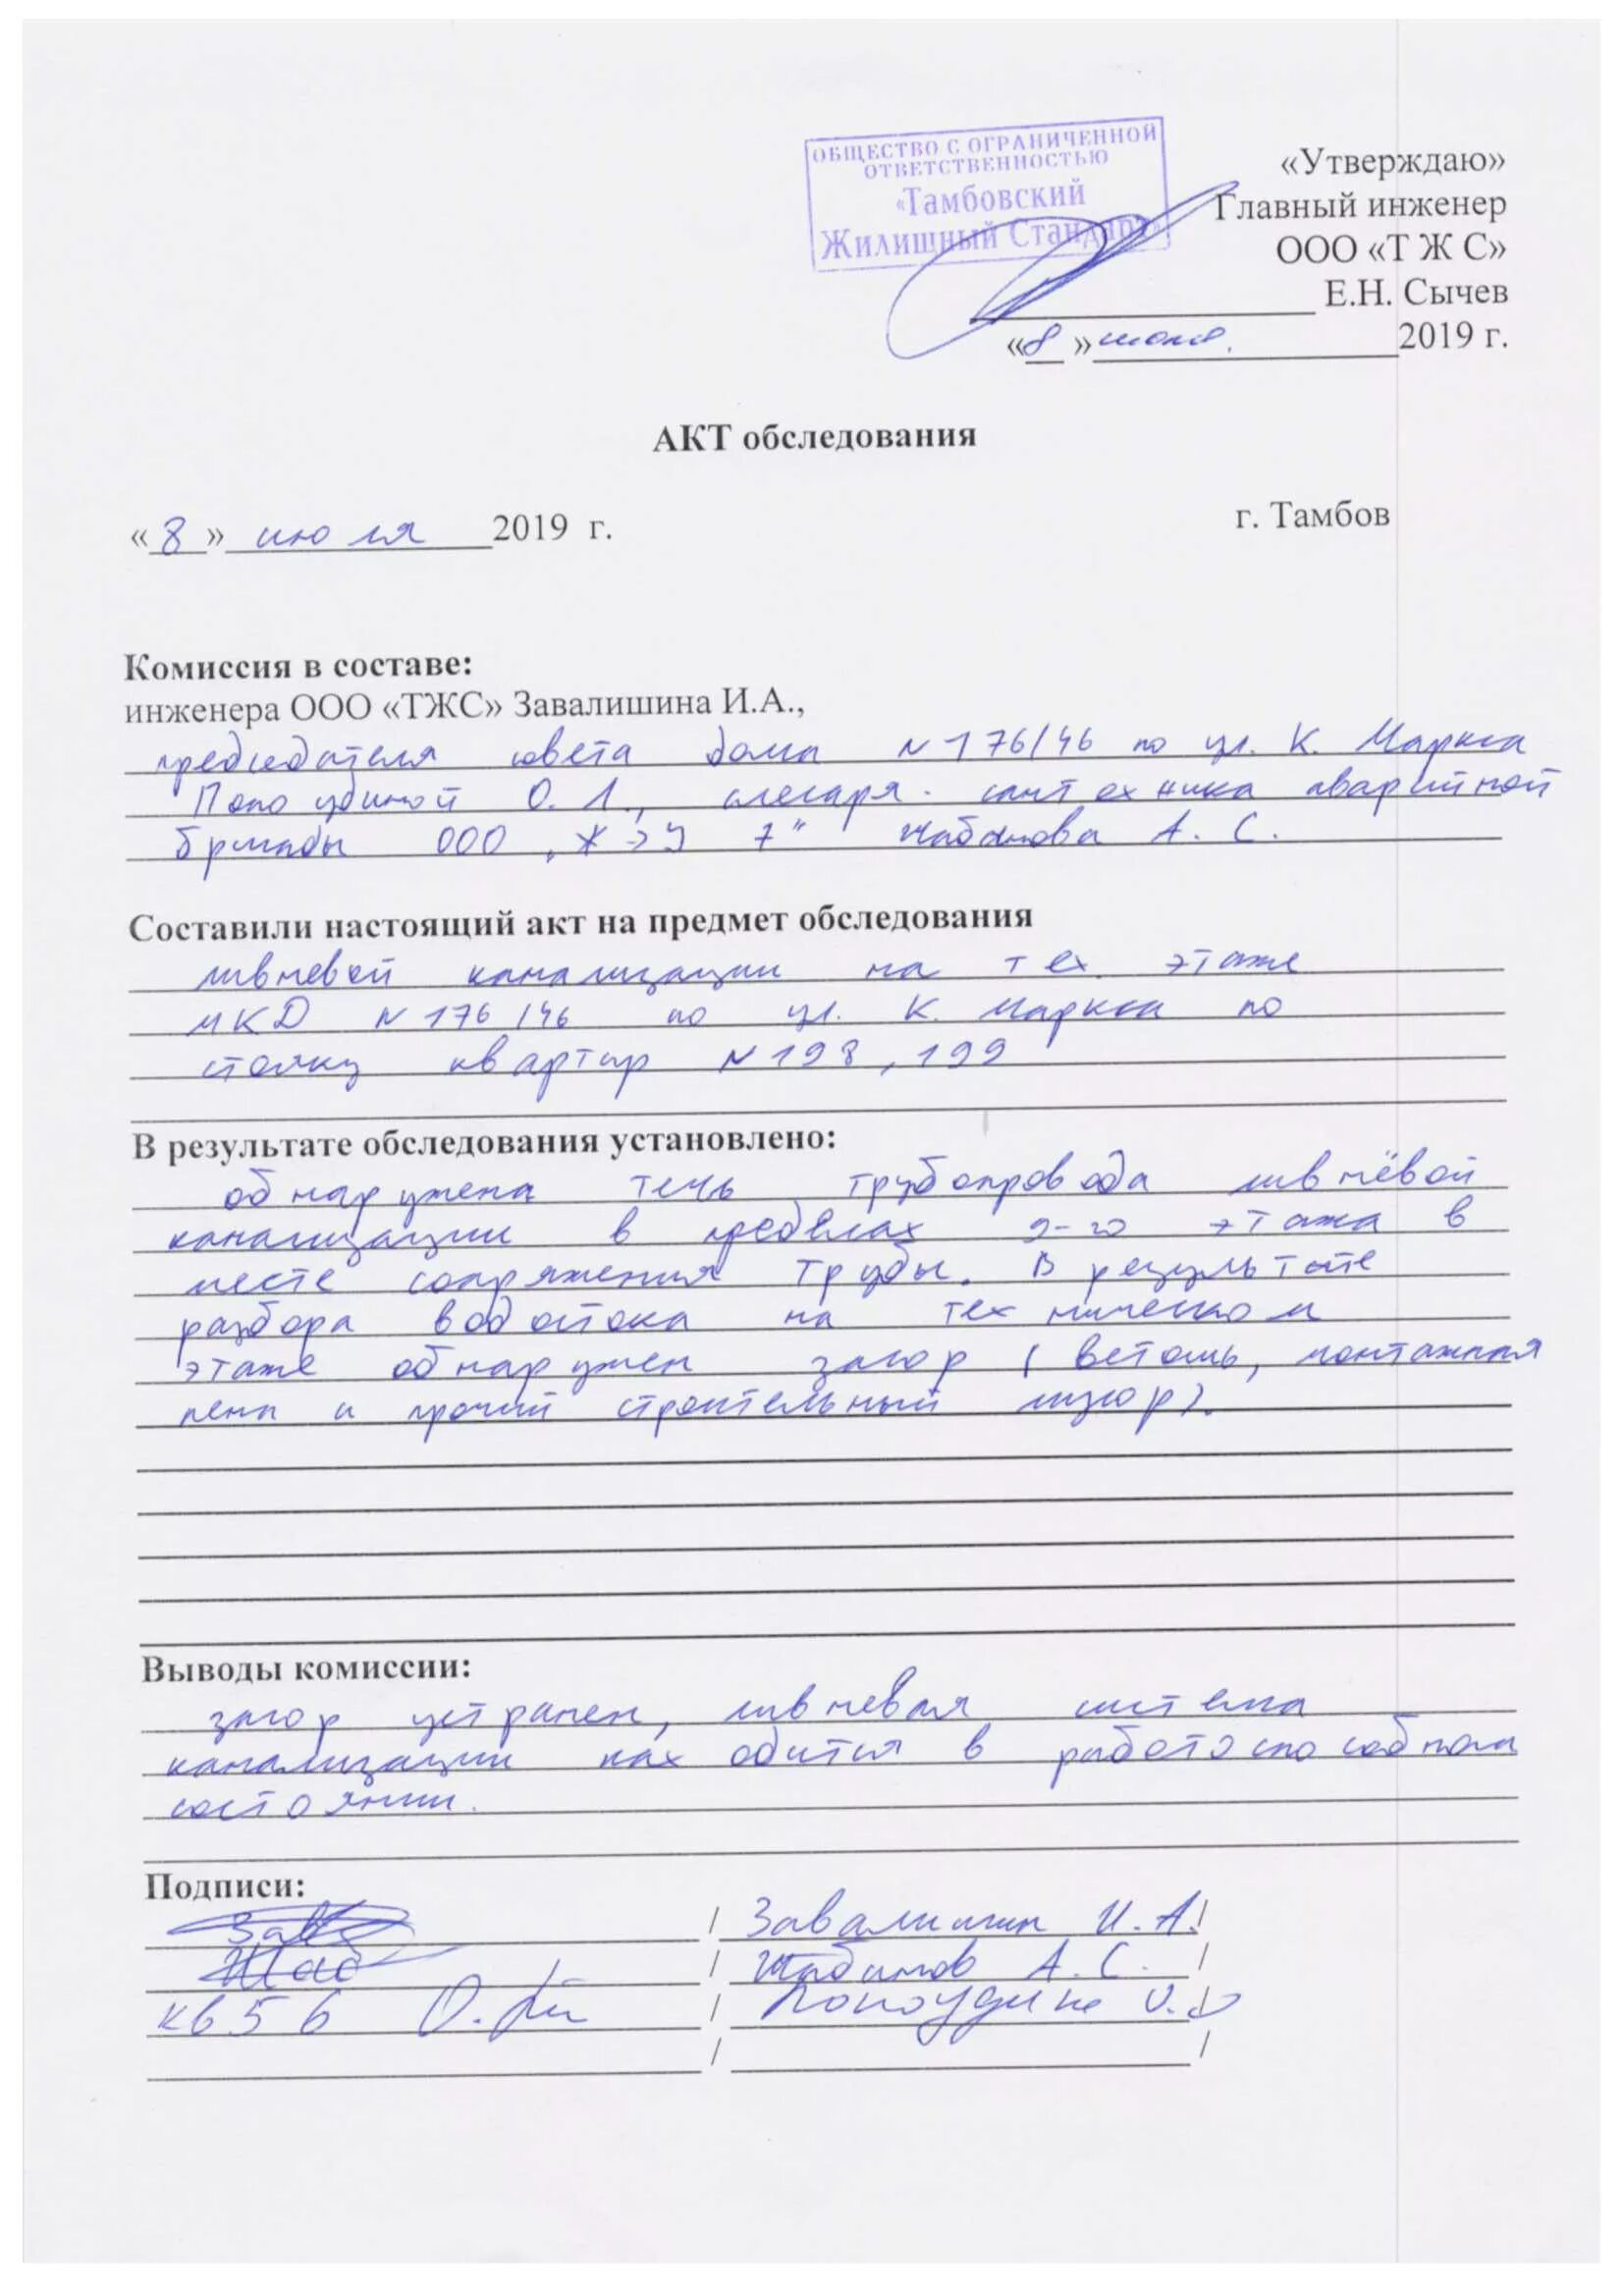 ОБЩЕСТВО С ОГРАНИЧЕННОЙ
ОТВЕТСТВЕННОСТЬЮ
«Тамбовский
Жилищный Стандарт»
«Утверждаю»
Главный инженер
ООО «Т Ж С»
Е.Н. Сычев
«8» июля 2019 г.
АКТ обследования
«8» июля 2019 г.
г. Тамбов
Комиссия в составе:
инженера ООО «ТЖС» Завалишина И.А.,
председателя совета дома N176/46 по ул. К. Маркса
Попоудиной О. Л., слесаря-сантехника аварийной
бригады ООО „ЖЭУ 7" А. С.
Составили настоящий акт на предмет обследования
ливневой канализации на тех. этаже
МКД N176/46 по ул. К. Маркса по
стояку квартир N198, 199
В результате обследования установлено:
обнаружена течь трубопровода ливнёвой
канализации в пределах 9-го этажа в
месте сопряжения трубы. В результате
разбора водостока на техническом
этаже обнаружен засор (ветошь, монтажная
пена и прочий строительный мусор).
Выводы комиссии:
засор устранен, ливневая система
канализации находится в работоспособном
состоянии.
Подписи:
Зав / Завалишин И.А./
/ А. С. /
кв 56 / Попоудина О.